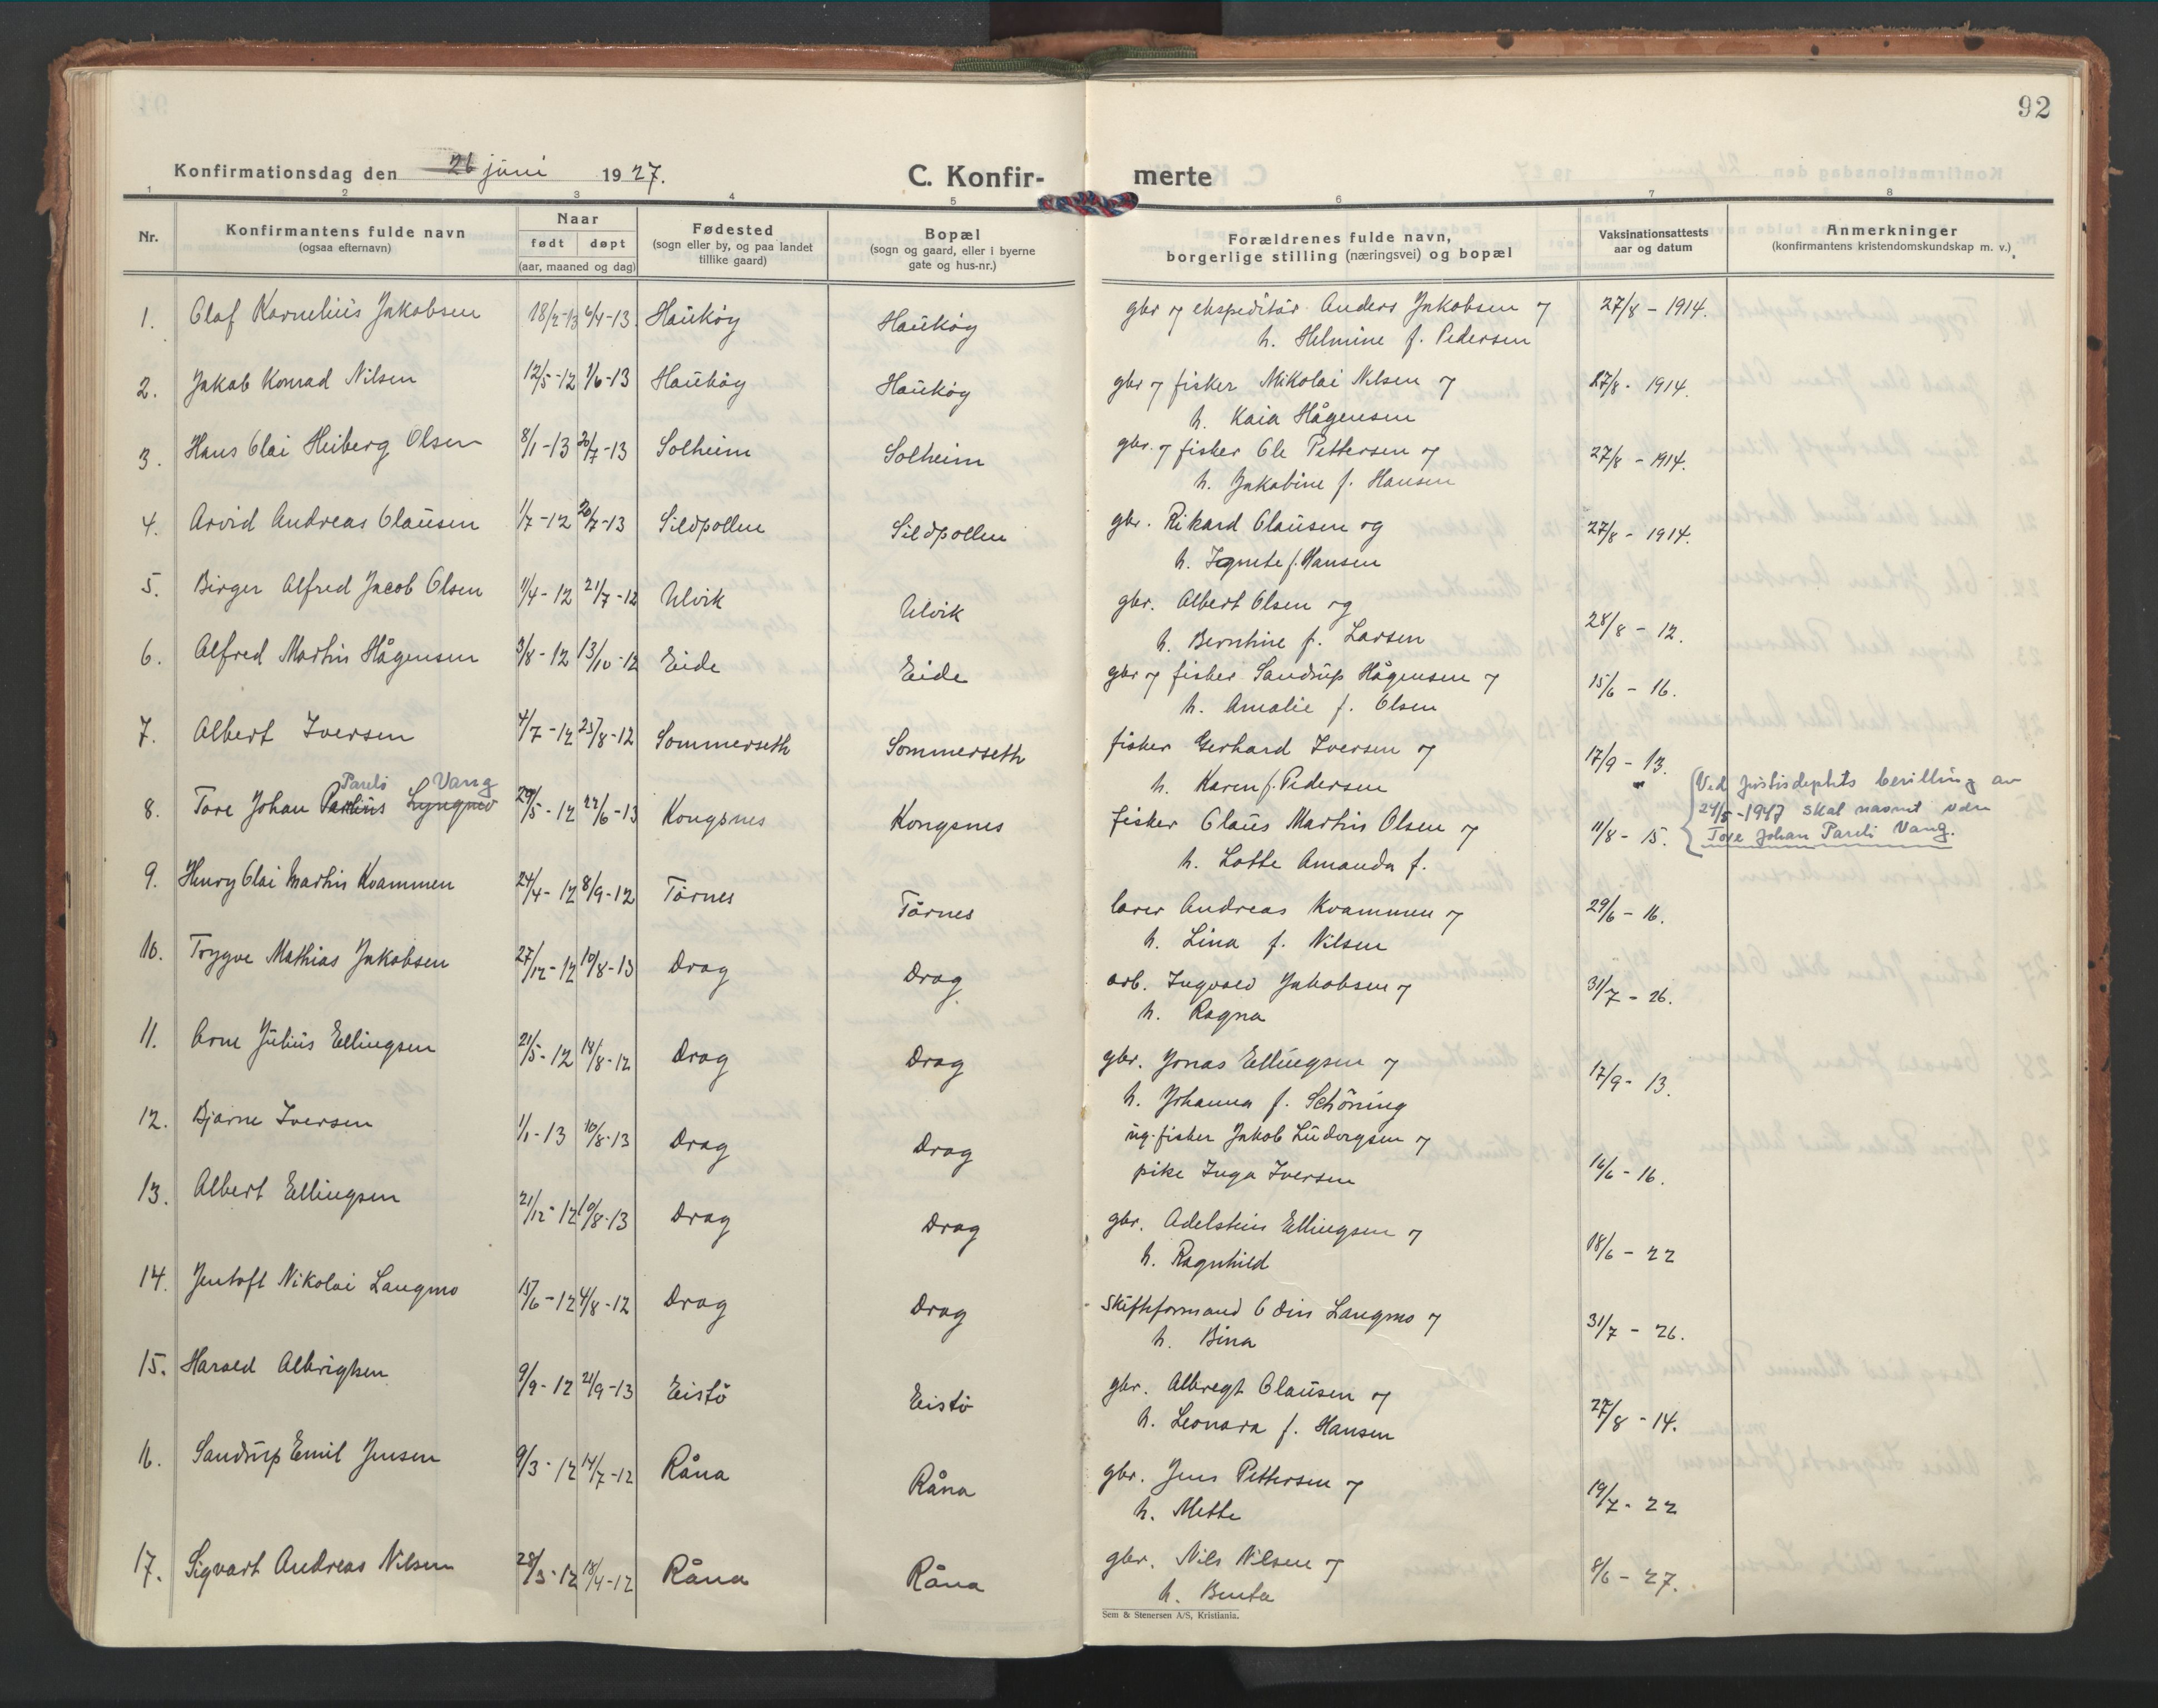 92
Konfirmationsdag den 26 juni 1927.
C. Konfir-
merte
1 2 3 4 5 6 7 8
Nr.
Konfirmantens fulde navn
(ogsaa efternavn)
Naar
født døpt
(aar, maaned og dag)
Fødested
(sogn eller by, og paa landet
tillike gaard)
Bopæl
(sogn og gaard, eller i byerne
gate og hus-nr.)
Forældrenes fulde navn,
borgerlige stilling (næringsvei) og bopæl
Vaksinationsattests
aar og datum
Anmerkninger
(konfirmantens kristendomskundskap m. v.)
1. Olaf Kornelius Jakobsen 18/2-13 6/4-13 Haukøy Haukøy gbr og ekspeditør Anders Jakobsen og 27/8 - 1914.
h. Helmine f. Pedersen
2. Jakob Konrad Nilsen 12/5-12 1/6-13 Haukøy Haukøy gbr og fisker Mikolai Nilsen og 27/8 - 1914.
h. Kaia Hågensen
3. Hans Olai Heiberg Olsen 8/1-13 20/7-13 Solheim Solheim gbr. og fisker Ole Pettersen og 27/8 - 1914.
h. Jakobine f. Hansen
4. Arvid Andreas Clausen 1/7-12 20/7-13 Sildpollen Sildpollen gbr. Rikard Clausen og 27/8 - 1914.
h. Agnete f. Hansen
5. Birger Alfred Jacob Olsen 11/4-12 21/7-12 Ulvik Ulvik gbr. Albert Olsen og 28/8 - 12.
h. Berntine f. Larsen
6. Alfred Martin Hågensen 3/8-12 13/10-12 Eide Eide gbr og fisker Sandrup Hågensen og 15/6 - 16.
h. Amalie f. Olsen
7. Albert Iversen 4/7-12 25/8-12 Sommerseth Sommerseth fisker Gerhard Iversen og 17/9 - 13.
h. Karen f. Pedersen
Pauli Vang
8. Tore Johan Paulius Lyngmo 29/5-12 22/6-13 Kongsnes Kongsnes fisker Claus Martin Olsen og 11/8 - 15.
h. Lotte Amanda f.
Ved Justisdeptets bevilling av
24/5-1947 skal navnet være
Tore Johan Pauli Vang.
9. Henry Olai Martin Kvammen 24/4-12 8/9-12 Tårnes Tårnes lærer Andreas Kvammen og 29/6 - 16.
h. Lina f. Nilsen
10. Trygve Mathias Jakobsen 27/12-12 10/8-13 Drag Drag arb. Ingvald Jakobsen og 31/7 - 26.
h. Ragna
11. Arne Julius Ellingsen 21/5-12 18/8-12 Drag Drag gbr. Jonas Ellingsen og 17/9 - 13.
h. Johanna f. Schöning
12. Bjarne Iversen 1/1-13 10/8-13 Drag Drag ug. fisker Jakob Ludvigsen og 16/6 - 16.
pike Inga Iversen
13. Albert Ellingsen 21/12-12 10/8-13 Drag Drag gbr. Adelstein Ellingsen og 18/6 - 22
h. Ragnhild
14. Jentoft Nikolai Langmo 15/6-12 4/8-12 Drag Drag Skifteformand Odin Langmo og 31/7 - 26.
h. Bina
15. Harald Albrigtsen 9/9-12 21/9-13 Eistö Eistö gbr. Albregt Clausen og 27/8 - 14.
h. Leonora f. Hansen
16. Sandrup Emil Jensen 9/3-12 14/7-12 Råna Råna gbr. Jens Pettersen og 19/7 - 22
h. Mette
17. Sigvart Andreas Nilsen 28/3-12 18/4-12 Råna Råna gbr. Nils Nilsen og 8/6 - 27.
h. Berta
Sem & Stenersen A/S, Kristiania.